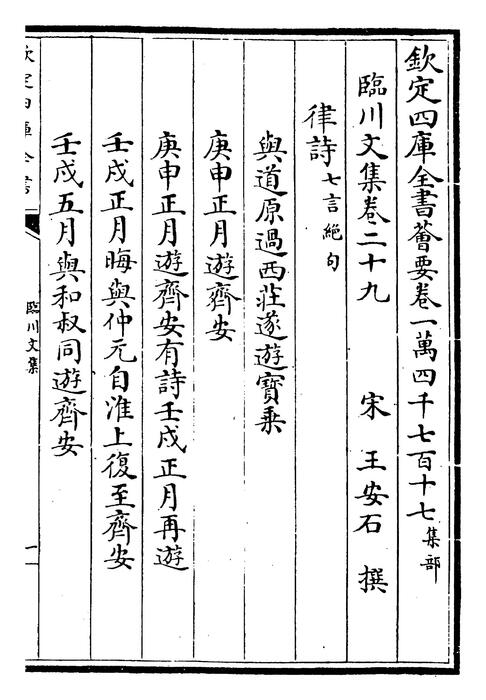 欽定四庫全書薈要卷一萬四千七百十七集部
臨川文集卷二十九 宋 王安石 撰
律詩七言絕句
與道原過西莊遂遊寶乗
庚申正月遊齊安
庚申正月遊齊安有詩壬戌正月再遊
壬戌正月晦與仲元自淮上復至齊安
壬戌五月與和叔同遊齊安
欽定四庫全書
臨川文集
一